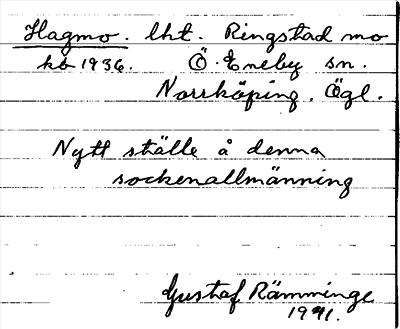 Hagmo. lht. Ringstad mo
kb 1936. Ö. Eneby sn.
Norrköping. Ögl.
Nytt ställe å denna
sockenallmänning
Gustaf Rämminge
1941.